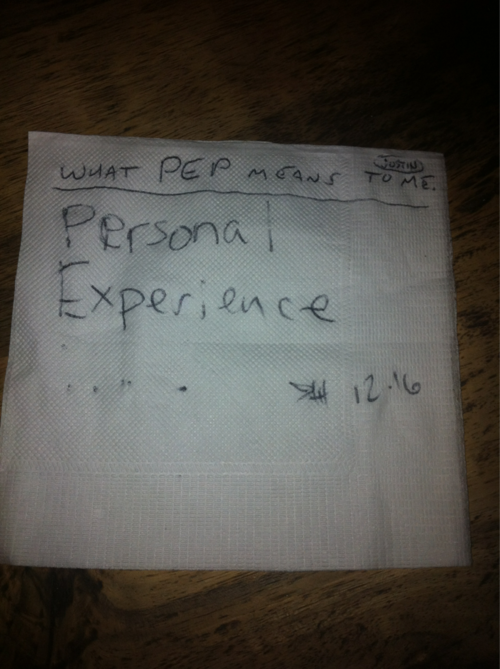 WHAT PEP MEANS TO ME.
JUSTIN
Personal
Experience
12.16